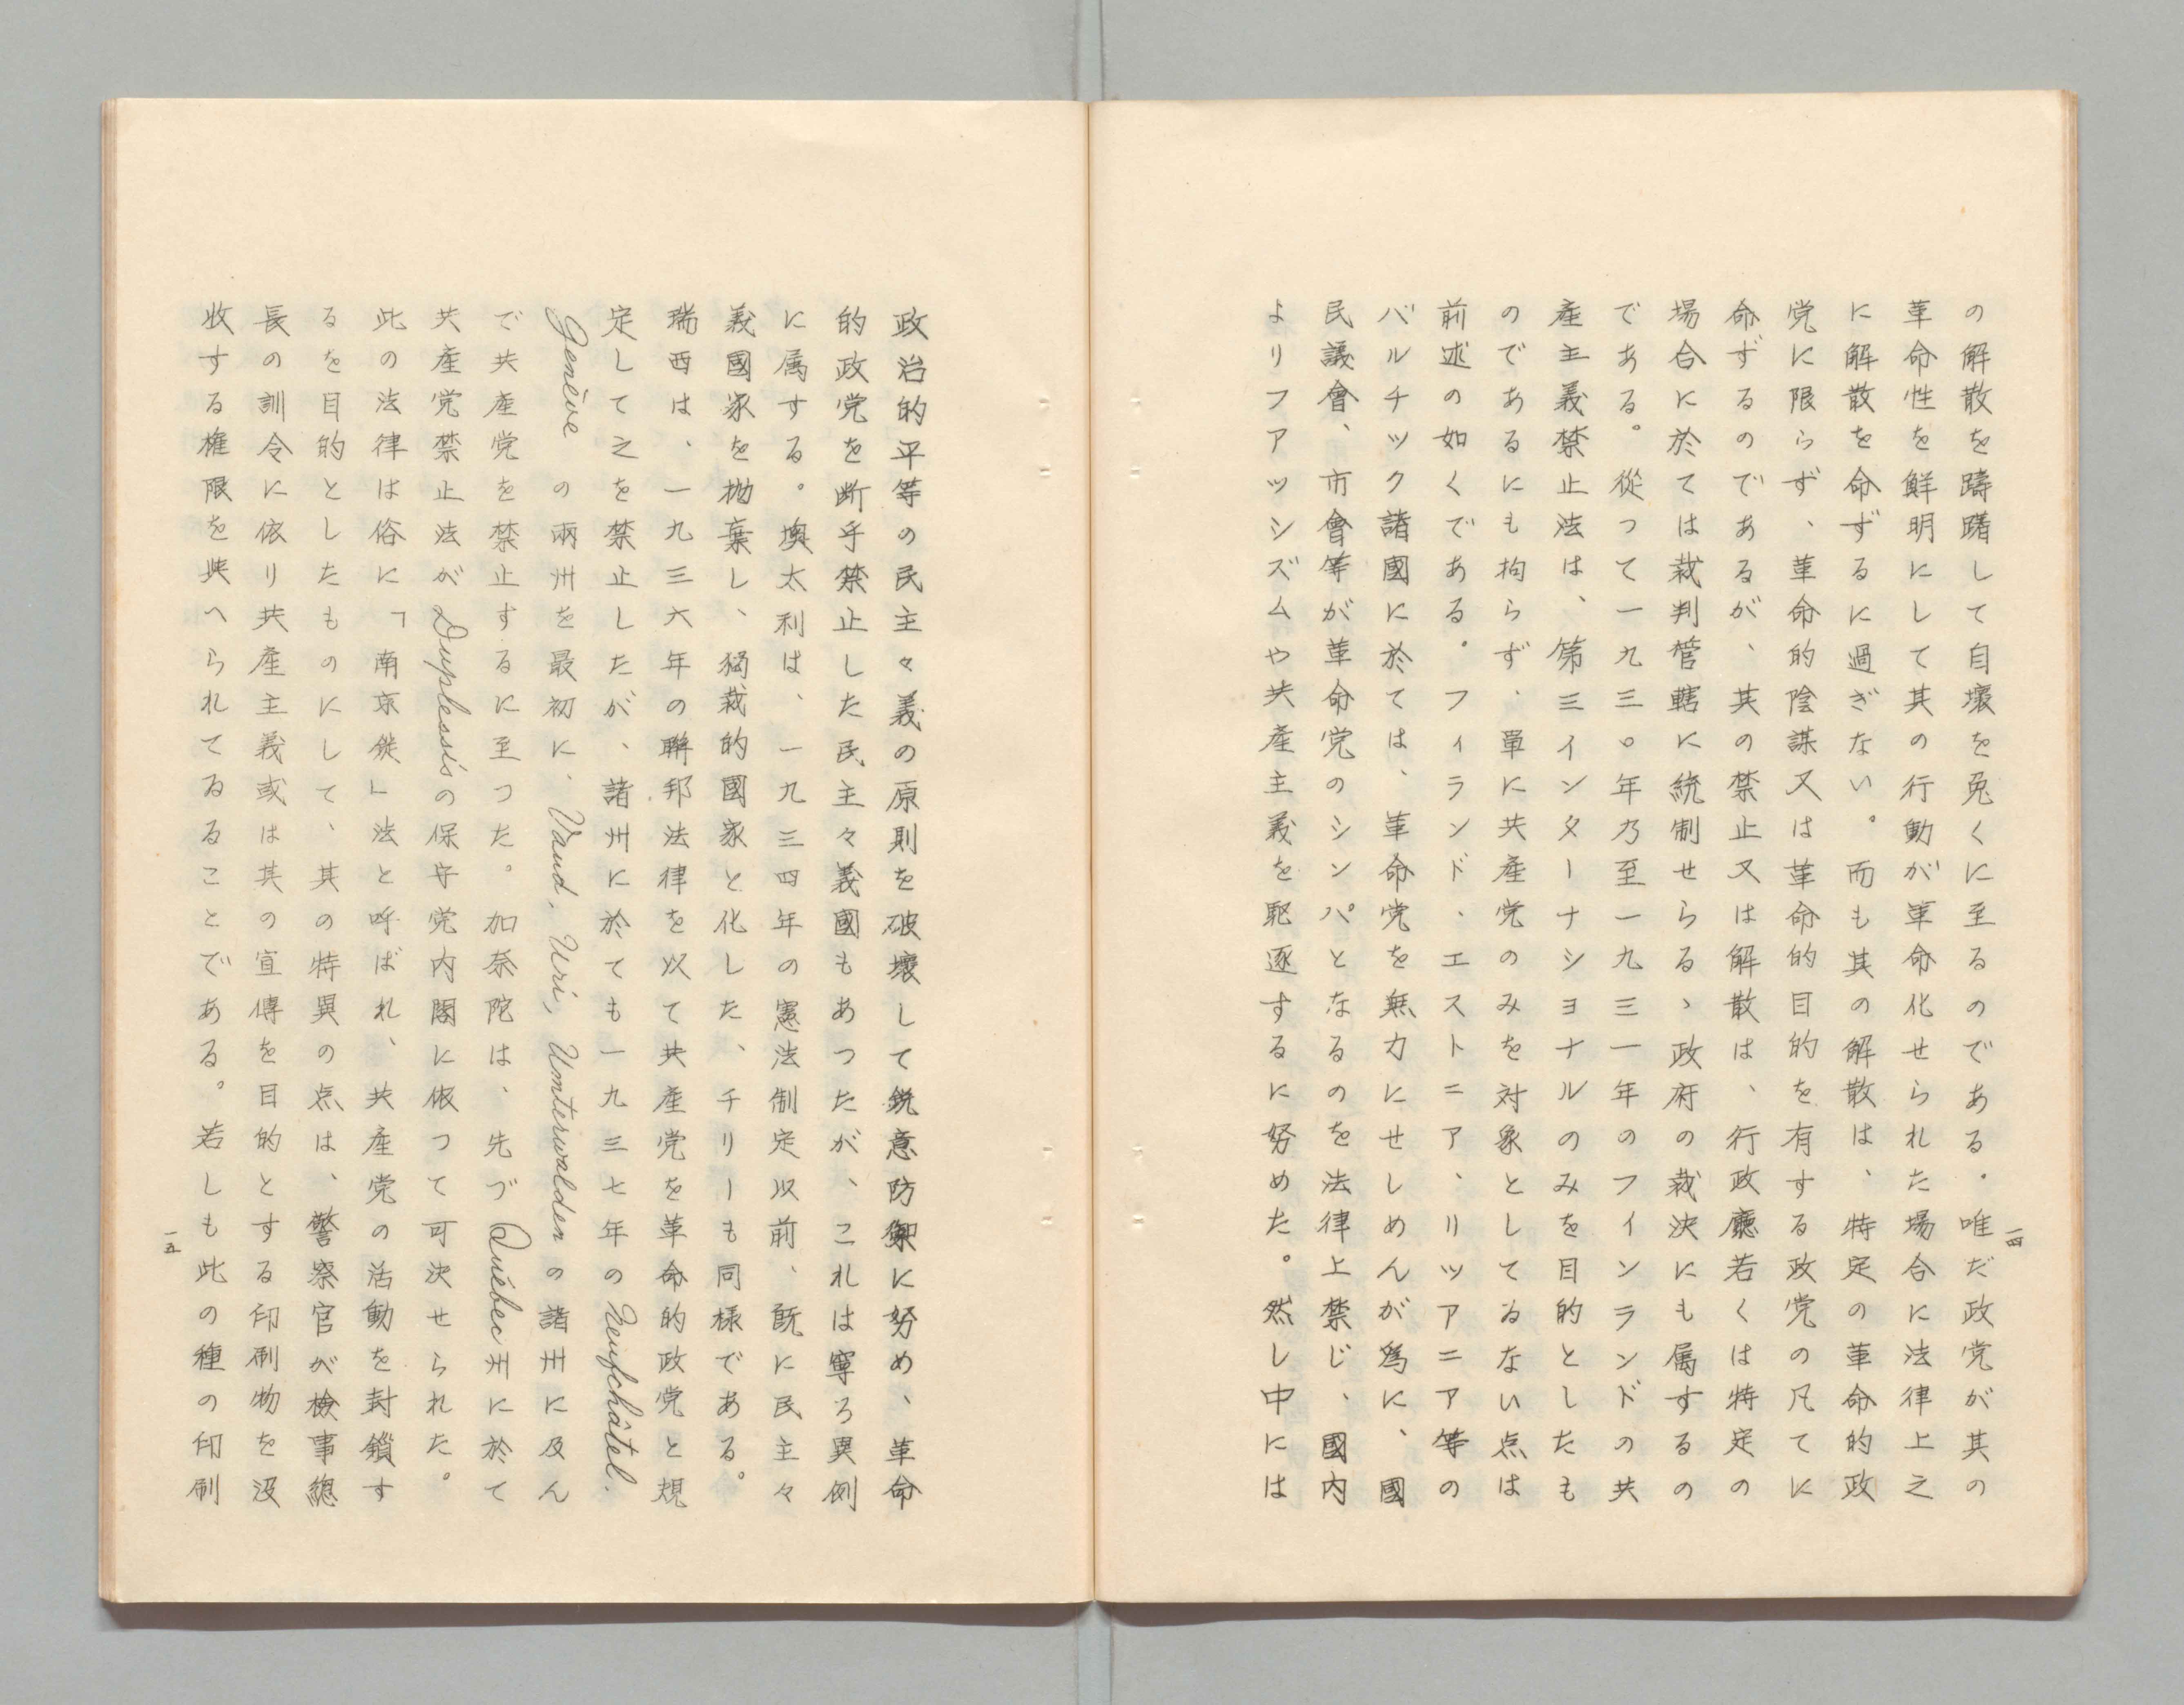 の解散を躊躇して自壊を兎くに至るのである。唯だ政党が其の
革命性を鮮明にして其の行動が革命化せられた場合に法律上之
に解散を命ずるに過ぎない。而も其の解散は、特定の革命的政
党に限らず、革命的陰謀又は革命的目的を有する政党の凡てに
命ずるのであるが、其の禁止又は解散は、行政廳若くは特定の
場合に於ては裁判管轄に統制せらるゝ政府の裁決にも属するの
である。從つて一九三〇年乃至一九三一年のフインランドの共
産主義禁止法は、第三インターナシヨナルのみを目的としたも
のであるにも拘らず、單に共産党のみを対象としてゐない点は
前述の如くである。フィランド、エストニア、リツアニア等の
バルチック諸國に於ては、革命党を無力にせしめんが為に、國
民議會、市會等が革命党のシンパとなるのを法律上禁じ、國内
よりフアッシズムや共産主義を駆逐するに努めた。然し中には
一四
政治的平等の民主々義の原則を破壊して鋭意防禦に努め、革命
的政党を断乎禁止した民主々義國もあつたが、これは寧ろ異例
に属する。墺太利は、一九三四年の憲法制定以前、既に民主々
義國家を抛棄し、獨裁的國家と化した、チリーも同様である。
瑞西は、一九三六年の聯邦法律を以て共産党を革命的政党と規
定して之を禁止したが、諸州に於ても一九三七年のNeufchâtel.
Genève の兩州を最初に、Vaud. Uri, Unterwalden の諸州に及ん
で共産党を禁止するに至つた。加奈陀は、先づ Québec 州に於て
共産党禁止法が Duplessis の保守党内閣に依つて可決せられた。
此の法律は俗に「南京錠」法と呼ばれ、共産党の活動を封鎖す
るを目的としたものにして、其の特異の点は、警察官が檢事總
長の訓令に依り共産主義或は其の宣傳を目的とする印刷物を没
收する権限を與へられてゐることである。若しも此の種の印刷
一五